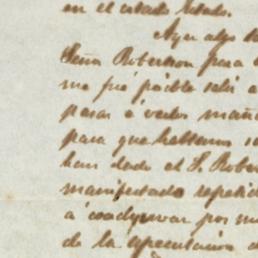 en el citado Estado.
Ayer algo
Señor Robertson para
me fué posible salir a
pasar á verlos maña
para que hablemos
han dado el S. Rober
manifestado repetid
á coadyuvar por mi
de la especulacion